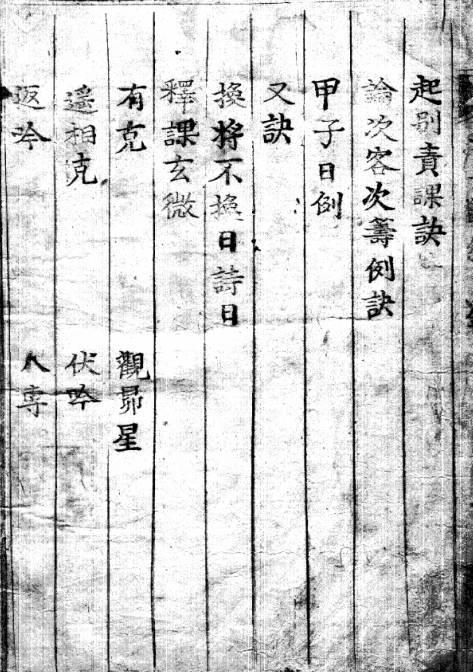 起別責課訣
論次客次籌例訣
甲子日例
又訣
換將不換日詩日
釋課玄微
有克　觀昴星
遥相克　伏吟
返吟　八專